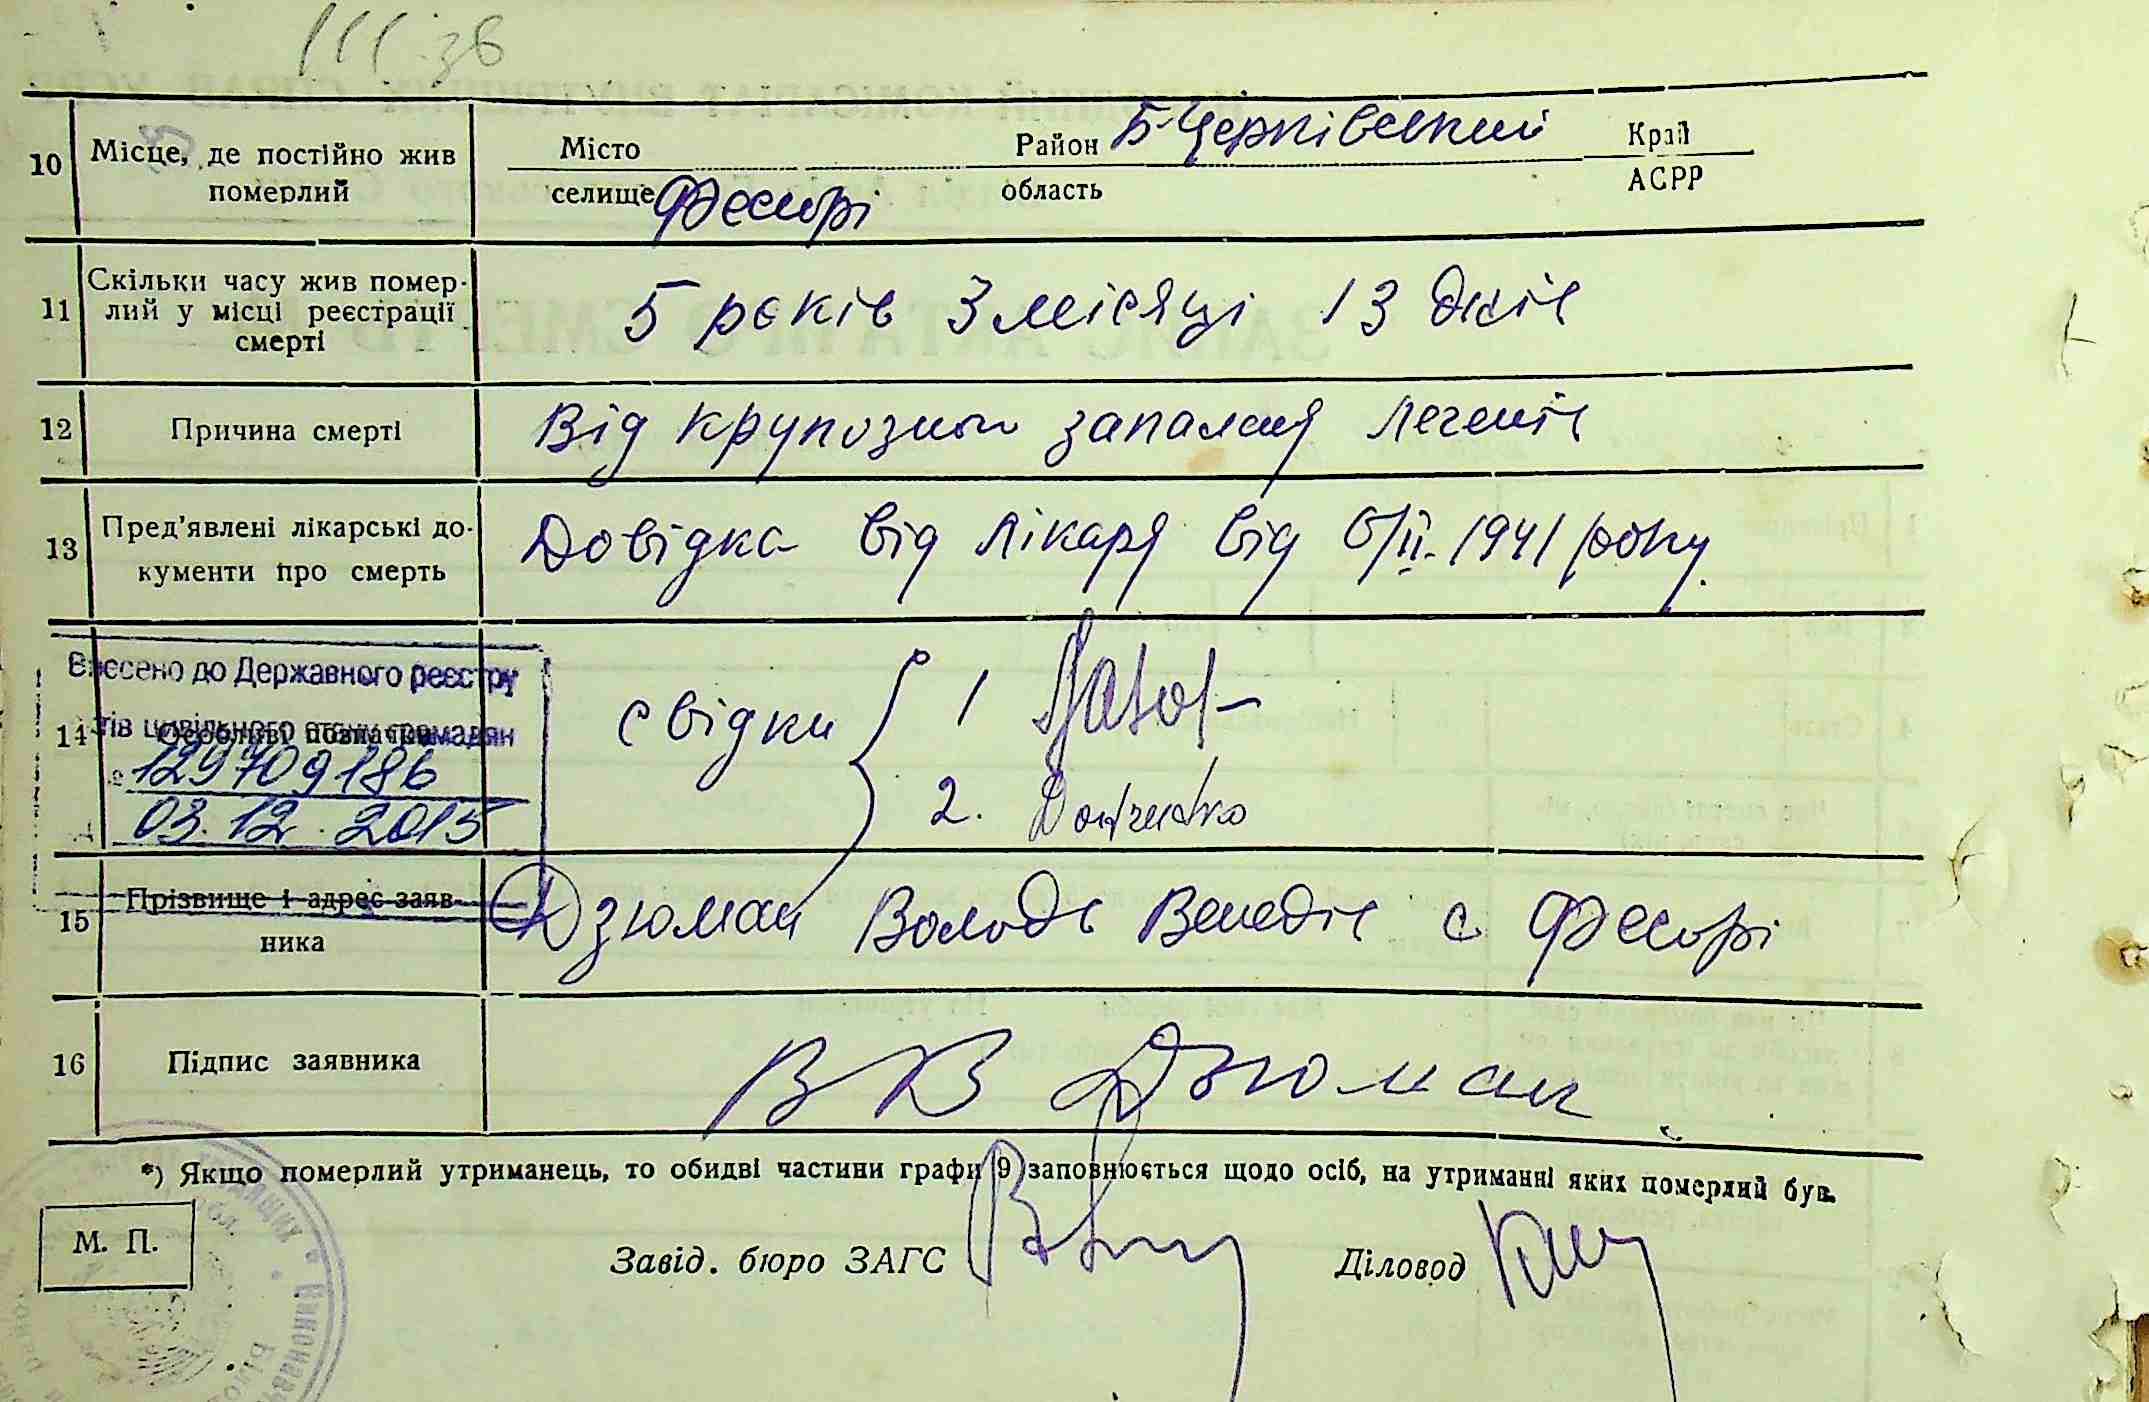 10 Місце, де постійно жив померлий
Місто
селище Фесюрі
Район Б-Церківський
область
Край
АСРР
11 Скільки часу жив помер-
лий у місці реєстрації
смерті
5 років 3 місяці 13 днів
12 Причина смерті
Від крупозного запалення легенів
13 Пред'явлені лікарські до-
кументи про смерть
Довідка від лікаря від 6/II. 1941 року.
Внесено до Державного реєстру
тів цивільного стану громадян
14 Особливі позначки
129709186
03.12.2015
свідки
1
2.
15 Прізвище і адрес заяв-
ника
Дзюман Володь Венедів с Фесюрі
16 Підпис заявника
В В Дзюман
*) Якщо померлий утриманець, то обидві частини графи 9 заповнюється щодо осіб, на утриманні яких померлий був.
М. П.
Завід. бюро ЗАГС
Діловод